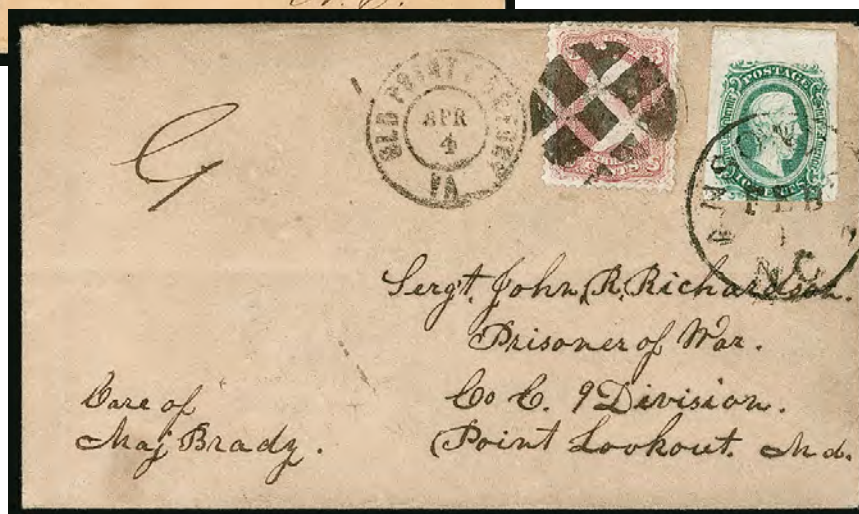 OLD POINT COMFORT
APR
4
VA
POSTAGE
FEB
1
N.C.
Sergt. John R. Richardson.
Prisoner of War.
Co C. 9 Division.
Point Lookout. Md.
Care of
Maj Brady.